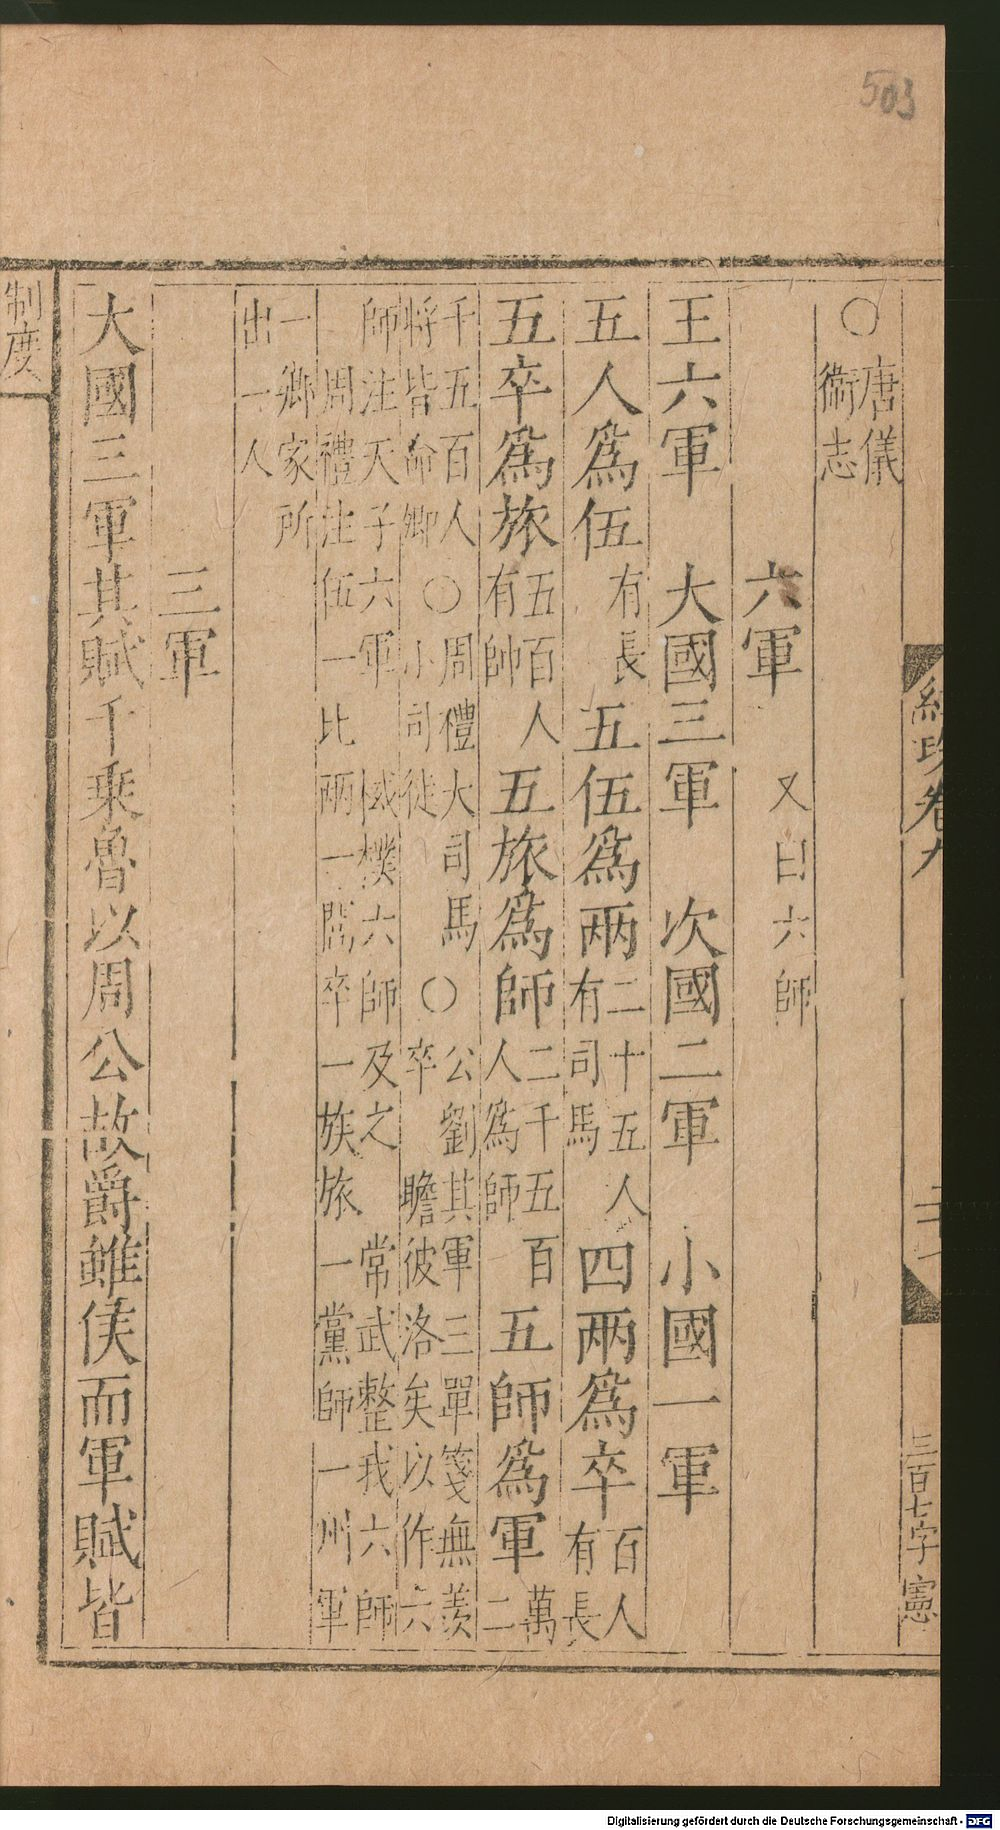 503
經攷卷九
三百七字 憲
○唐儀
衞志
六軍 又曰六師
王六軍 大國三軍 次國二軍 小國一軍
五人爲伍有長五伍爲兩二十五人有司馬四兩爲卒百人有長
五卒爲旅五百人有帥五旅爲師二千五百人爲師五師爲軍萬二
千五百人將皆命卿○周禮大司馬小司徒○公劉其軍三單箋無羨卒 瞻彼洛矣以作六
師注天子六軍 棫樸六師及之 常武整我六師
周禮注伍一比兩一閭卒一族旅一黨師一州軍
一鄉家所
出一人
三軍
大國三軍其賦千乗魯以周公故爵雖侯而軍賦皆
制度
Digitalisierung gefördert durch die Deutsche Forschungsgemeinschaft - DFG